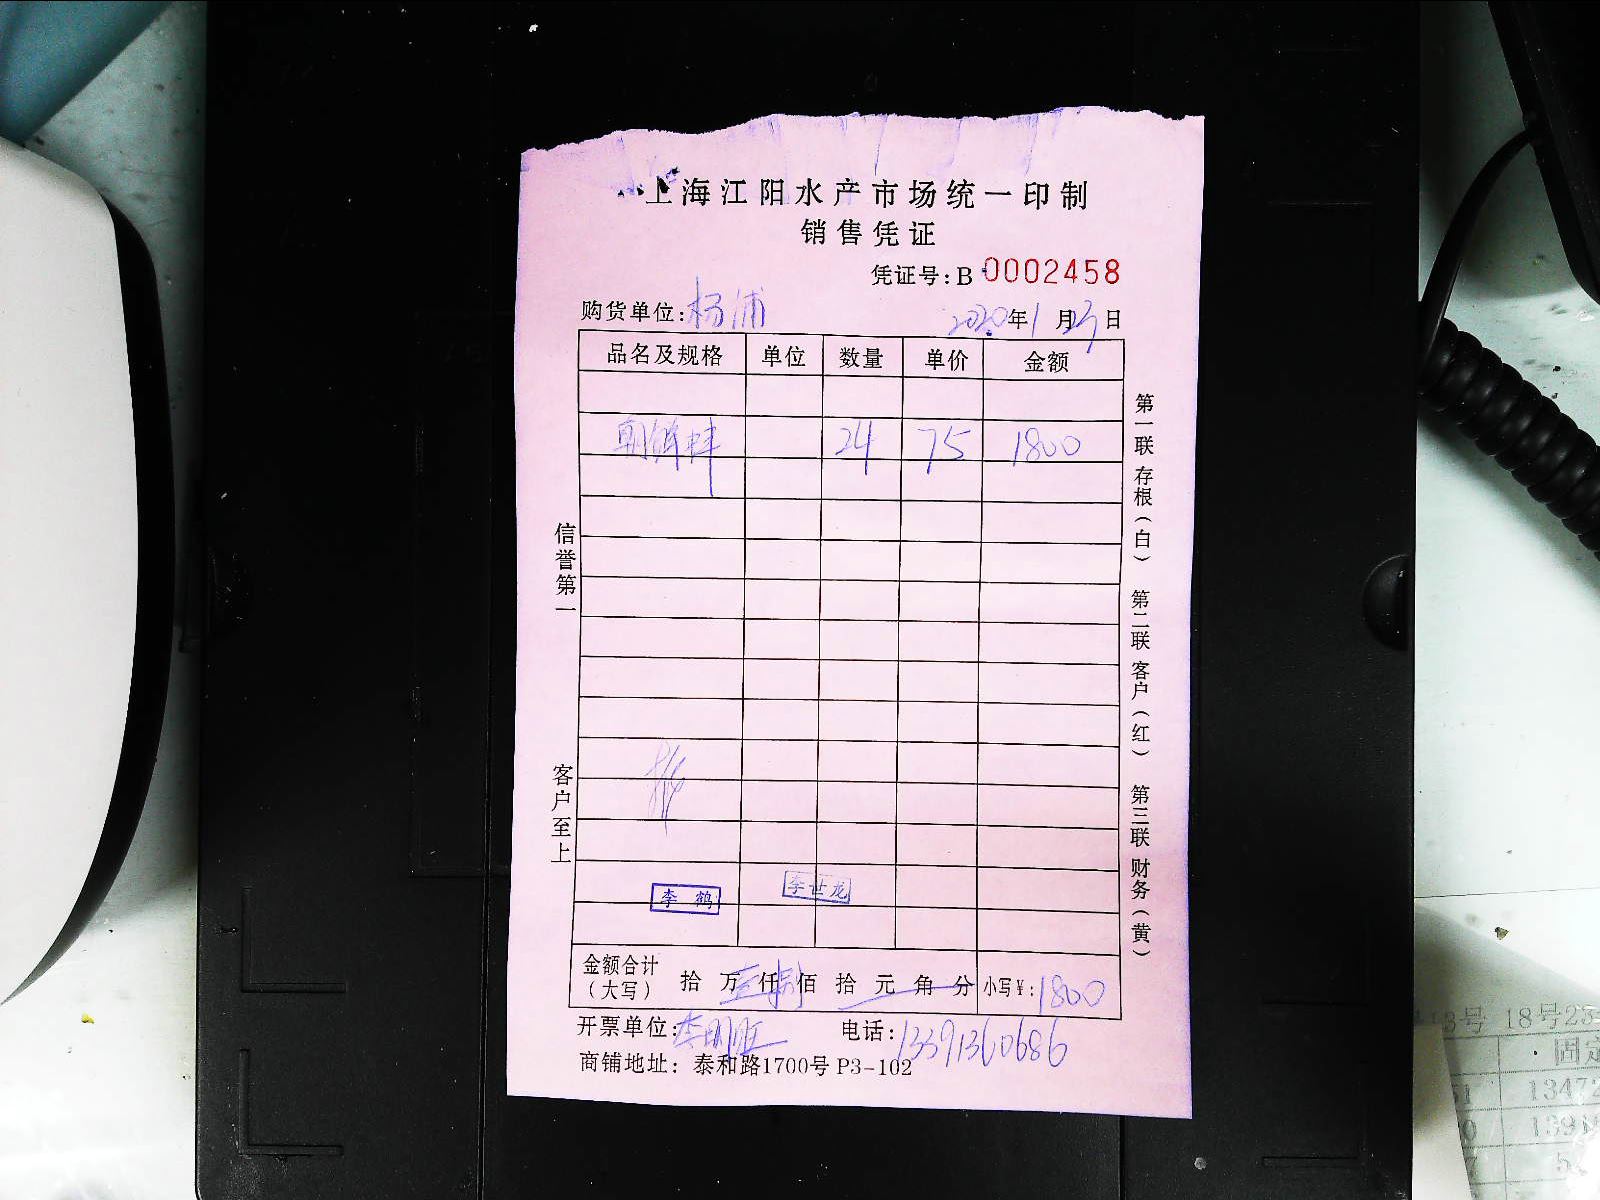 上海江阳水产市场统一印制
销售凭证
凭证号:B 0002458
购货单位:杨浦
2020年1月27日
品名及规格 单位 数量 单价 金额
朝鲜蚌 24 75 1800
信誉第一
客户至上
第一联 存根(白) 第二联 客户(红) 第三联 财务(黄)
李鹤 李世龙
金额合计(大写) 拾 万 仟 佰 拾 元 角 分 小写¥:1800
开票单位:李明旺 电话:13391360686
商铺地址: 泰和路1700号 P3-102
13号 18号23
固定
51 13472
0 1391
7 5